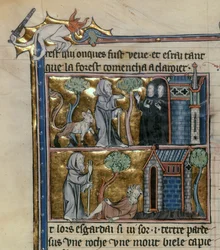 rest qui onques fust veue et esra tant
que la forest comencha a claroier
et lors esgarda si uit sor .i. tertre
sus une roche une mout biele capie